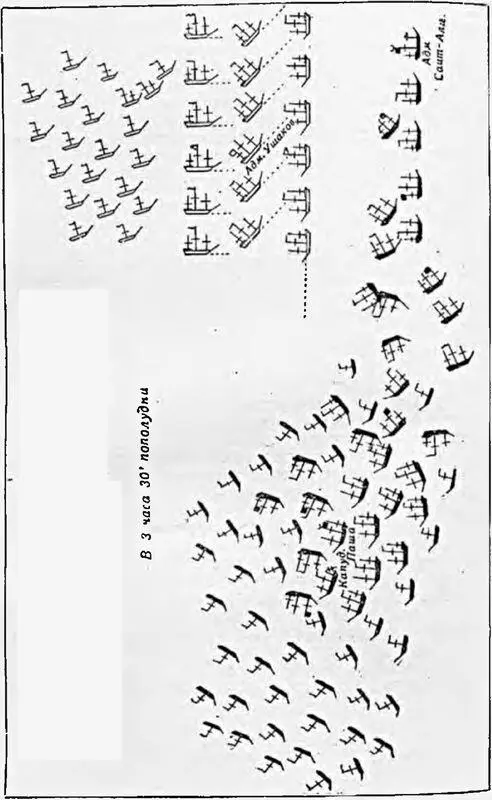 Адм.
Саит-Али.
Адм. Ушаков
В 3 часа 30' пополудни
Капуд.
Паша